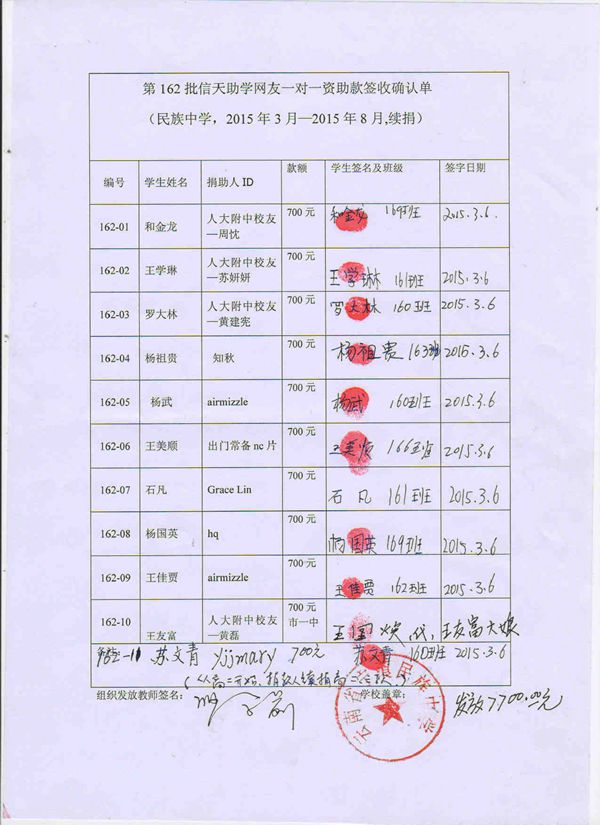 第 162 批信天助学网友一对一资助款签收确认单
（民族中学，2015 年 3 月—2015 年 8 月,续捐）
编号 学生姓名 捐助人 ID 款额 学生签名及班级 签字日期
162-01 和金龙 人大附中校友—周忱 700 元 和金龙 169班 2015.3.6.
162-02 王学琳 人大附中校友—苏妍妍 700 元 王学琳 161班 2015.3.6
162-03 罗大林 人大附中校友—黄建宪 700 元 罗大林 160班 2015.3.6
162-04 杨祖贵 知秋 700 元 杨祖贵 163班 2015.3.6
162-05 杨武 airmizzle 700 元 杨武 160班 2015.3.6
162-06 王美顺 出门常备 nc 片 700 元 王美顺 166班 2015.3.6
162-07 石凡 Grace Lin 700 元 石凡 161班 2015.3.6
162-08 杨国英 hq 700 元 杨国英 169班 2015.3.6
162-09 王佳贾 airmizzle 700 元 王佳贾 162班 2015.3.6
162-10 王友富 人大附中校友—黄磊 700 元 市一中 王国焕代,王友富大娘
162-11 苏文青 yjjmary 700元 苏文青 160班 2015.3.6
组织发放教师签名： 学校盖章： 发放7700.00元
民族中学